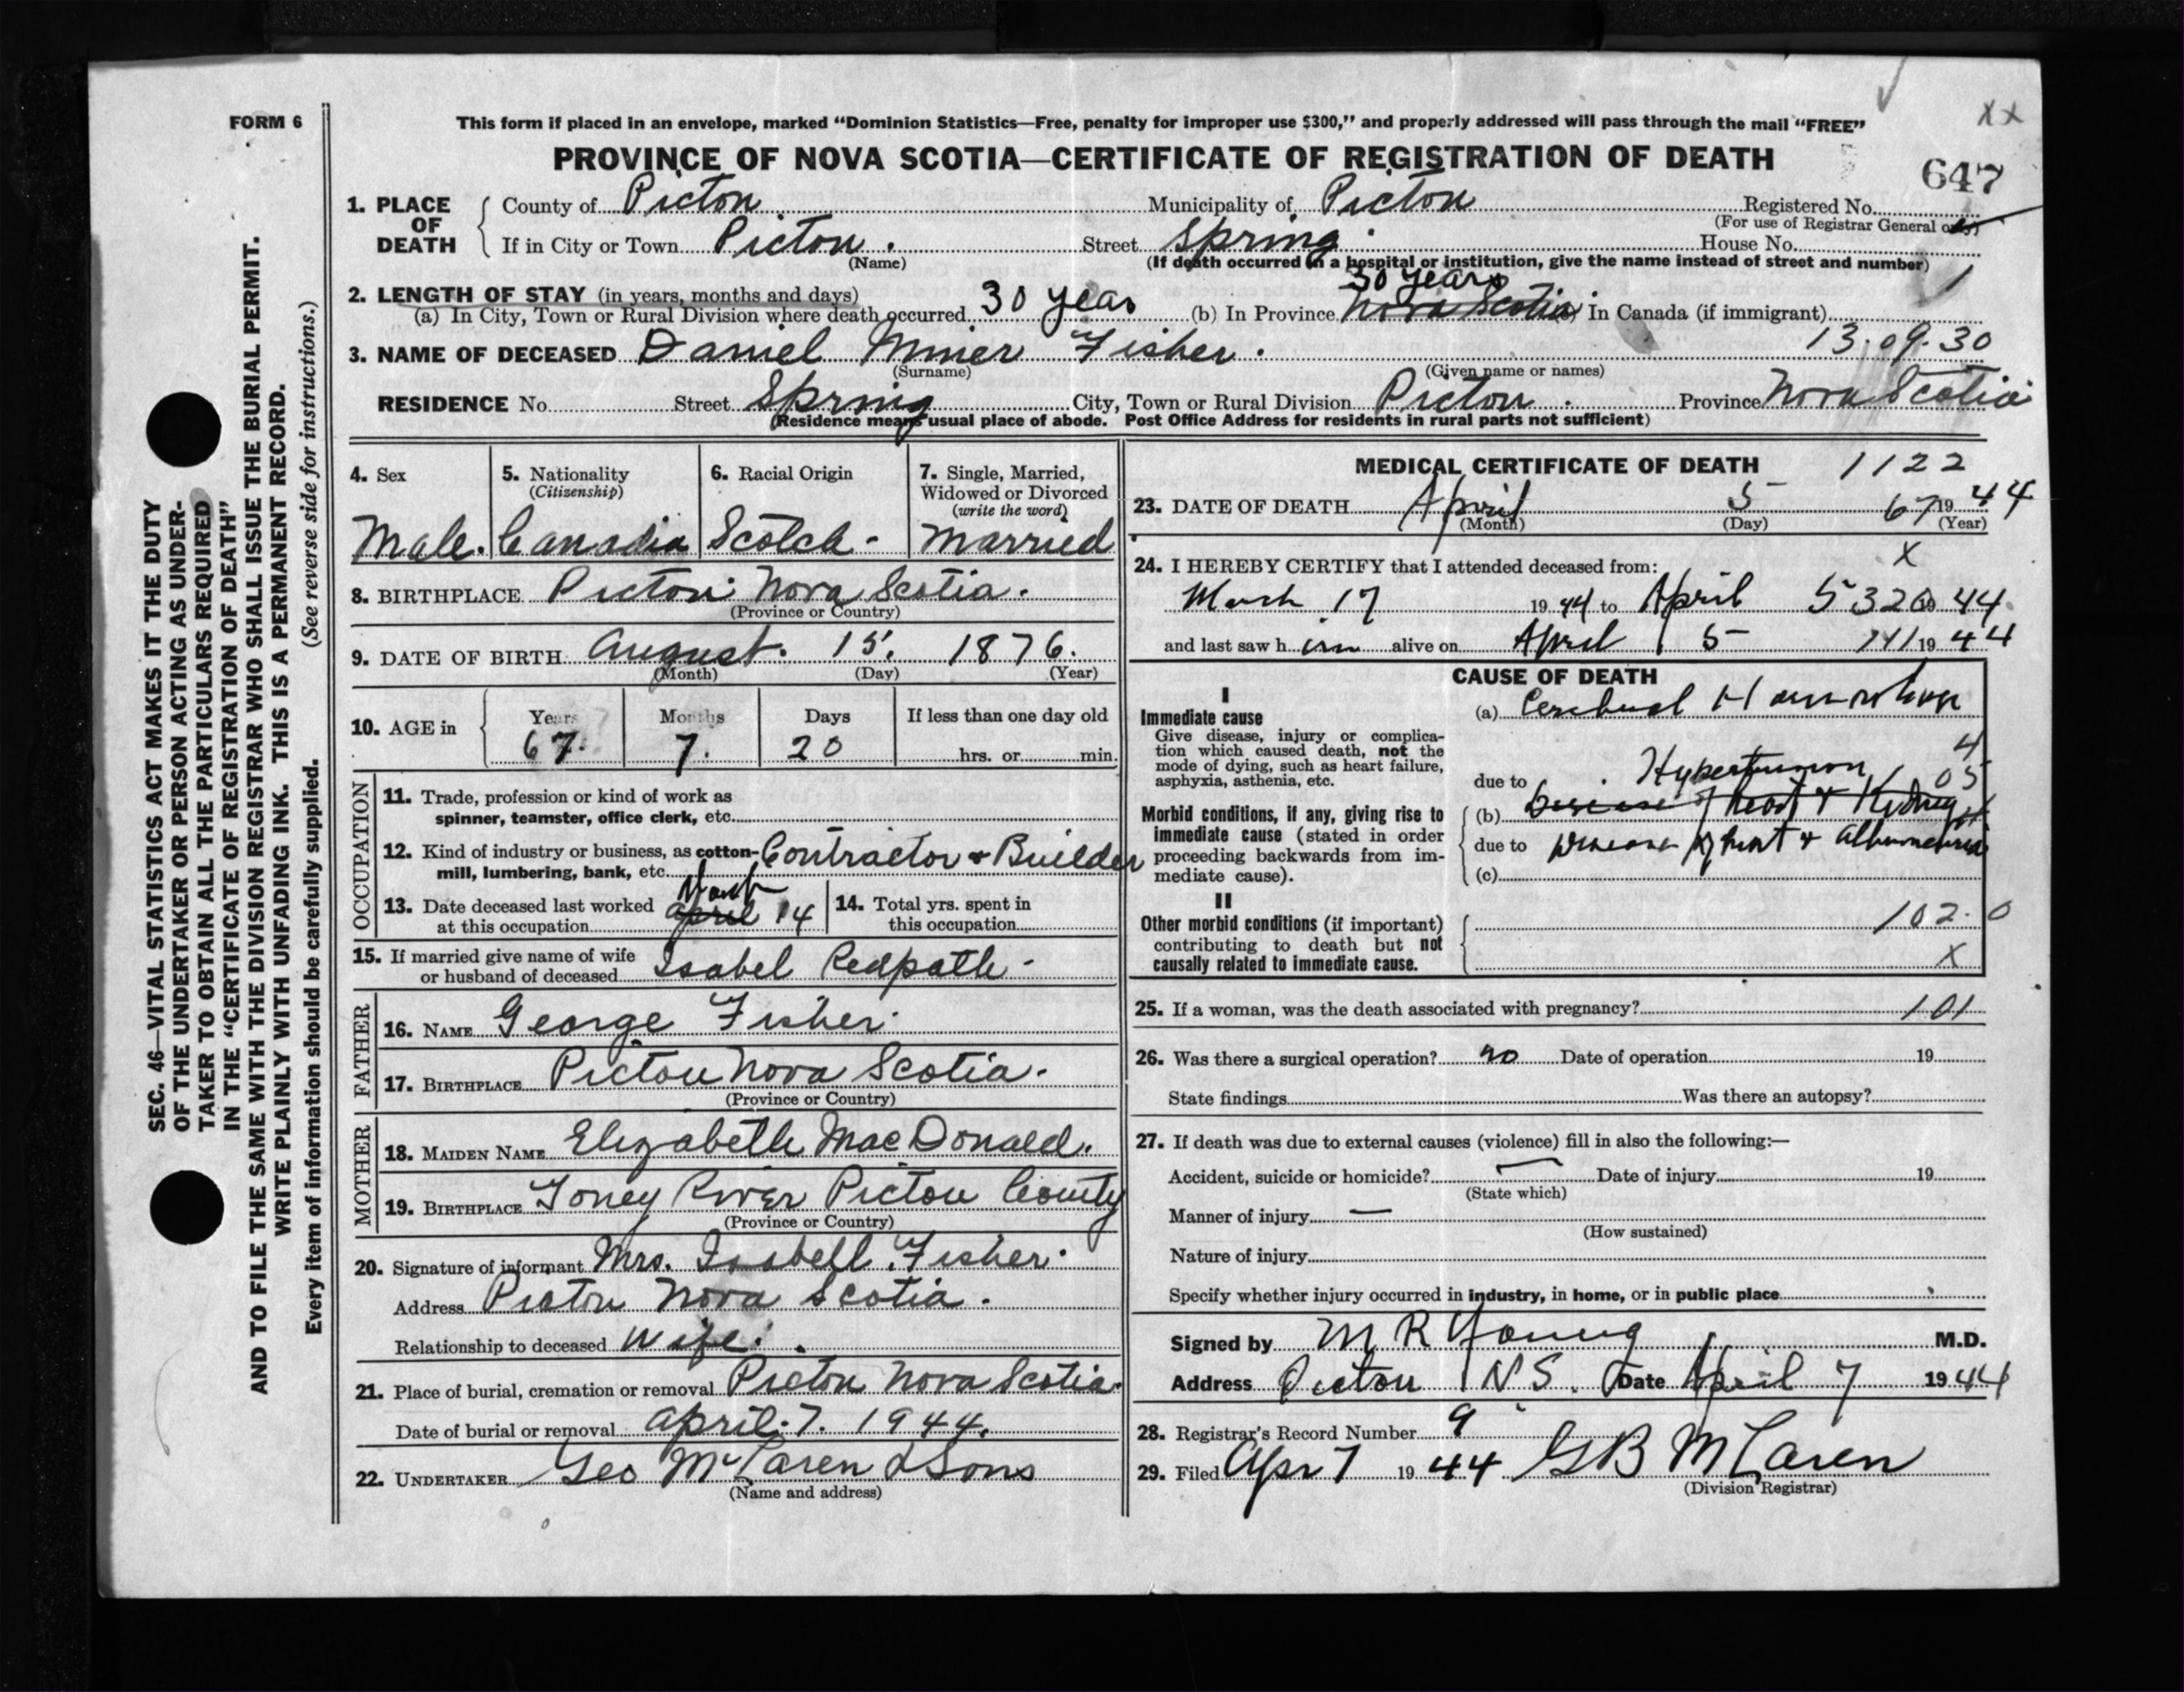 FORM 6
This form if placed in an envelope, marked “Dominion Statistics—Free, penalty for improper use $300,” and properly addressed will pass through the mail “FREE”
xx
PROVINCE OF NOVA SCOTIA—CERTIFICATE OF REGISTRATION OF DEATH
647
1. PLACE OF DEATH
County of Pictou Municipality of Pictou Registered No.
(For use of Registrar General only)
If in City or Town Pictou. Street Spring House No.
(Name) (If death occurred in a hospital or institution, give the name instead of street and number)
1
2. LENGTH OF STAY (in years, months and days)
30 years
(a) In City, Town or Rural Division where death occurred 30 years (b) In Province Nova Scotia (c) In Canada (if immigrant)
3. NAME OF DECEASED Daniel Miner Fisher. 13.09.30
(Surname) (Given name or names)
RESIDENCE No. Street Spring City, Town or Rural Division Pictou. Province Nova Scotia
(Residence means usual place of abode. Post Office Address for residents in rural parts not sufficient)
4. Sex
Male.
5. Nationality
(Citizenship)
Canadia
6. Racial Origin
Scotch-
7. Single, Married,
Widowed or Divorced
(write the word)
Married
8. BIRTHPLACE Pictou Nova Scotia.
(Province or Country)
9. DATE OF BIRTH August. 15. 1876.
(Month) (Day) (Year)
10. AGE in
Years Months Days If less than one day old
67. 7. 20 hrs. or min.
OCCUPATION
11. Trade, profession or kind of work as
spinner, teamster, office clerk, etc.
12. Kind of industry or business, as cotton-
mill, lumbering, bank, etc. Contractor & Builder
13. Date deceased last worked
at this occupation March April 14
14. Total yrs. spent in
this occupation
15. If married give name of wife
or husband of deceased Isabel Redpath-
FATHER
16. NAME George Fisher.
17. BIRTHPLACE Pictou Nova Scotia.
(Province or Country)
MOTHER
18. MAIDEN NAME Elizabeth MacDonald.
19. BIRTHPLACE Toney River Pictou County
(Province or Country)
20. Signature of informant Mrs. Isabell Fisher.
Address Pictou Nova Scotia.
Relationship to deceased Wife.
21. Place of burial, cremation or removal Pictou Nova Scotia
Date of burial or removal April. 7. 1944.
22. UNDERTAKER Geo McLaren & Sons
(Name and address)
MEDICAL CERTIFICATE OF DEATH 1122
23. DATE OF DEATH April 5 67 1944
(Month) (Day) (Year)
x
24. I HEREBY CERTIFY that I attended deceased from:
March 17 1944 to April 5 320 19 44.
and last saw him alive on April 5 111 1944
CAUSE OF DEATH
I
Immediate cause
Give disease, injury or complica-
tion which caused death, not the
mode of dying, such as heart failure,
asphyxia, asthenia, etc.
(a) Cerebral Haemorrhage
4
due to Hypertension 05
Morbid conditions, if any, giving rise to
immediate cause (stated in order
proceeding backwards from im-
mediate cause).
(b) Disease of heart & Kidney
due to Disease of heart & Albumenuria
(c)
II
Other morbid conditions (if important)
contributing to death but not
causally related to immediate cause.
102.0
X
25. If a woman, was the death associated with pregnancy? 101
26. Was there a surgical operation? no Date of operation 19
State findings Was there an autopsy?
27. If death was due to external causes (violence) fill in also the following:—
Accident, suicide or homicide? — Date of injury 19
(State which)
Manner of injury —
(How sustained)
Nature of injury
Specify whether injury occurred in industry, in home, or in public place
Signed by M R Young M.D.
Address Pictou N S. Date April 7 1944
28. Registrar's Record Number 9
29. Filed Apr 7 1944 G B McLaren
(Division Registrar)
SEC. 46—VITAL STATISTICS ACT MAKES IT THE DUTY
OF THE UNDERTAKER OR PERSON ACTING AS UNDER-
TAKER TO OBTAIN ALL THE PARTICULARS REQUIRED
IN THE “CERTIFICATE OF REGISTRATION OF DEATH”
AND TO FILE THE SAME WITH THE DIVISION REGISTRAR WHO SHALL ISSUE THE BURIAL PERMIT.
WRITE PLAINLY WITH UNFADING INK. THIS IS A PERMANENT RECORD.
Every item of information should be carefully supplied. (See reverse side for instructions.)